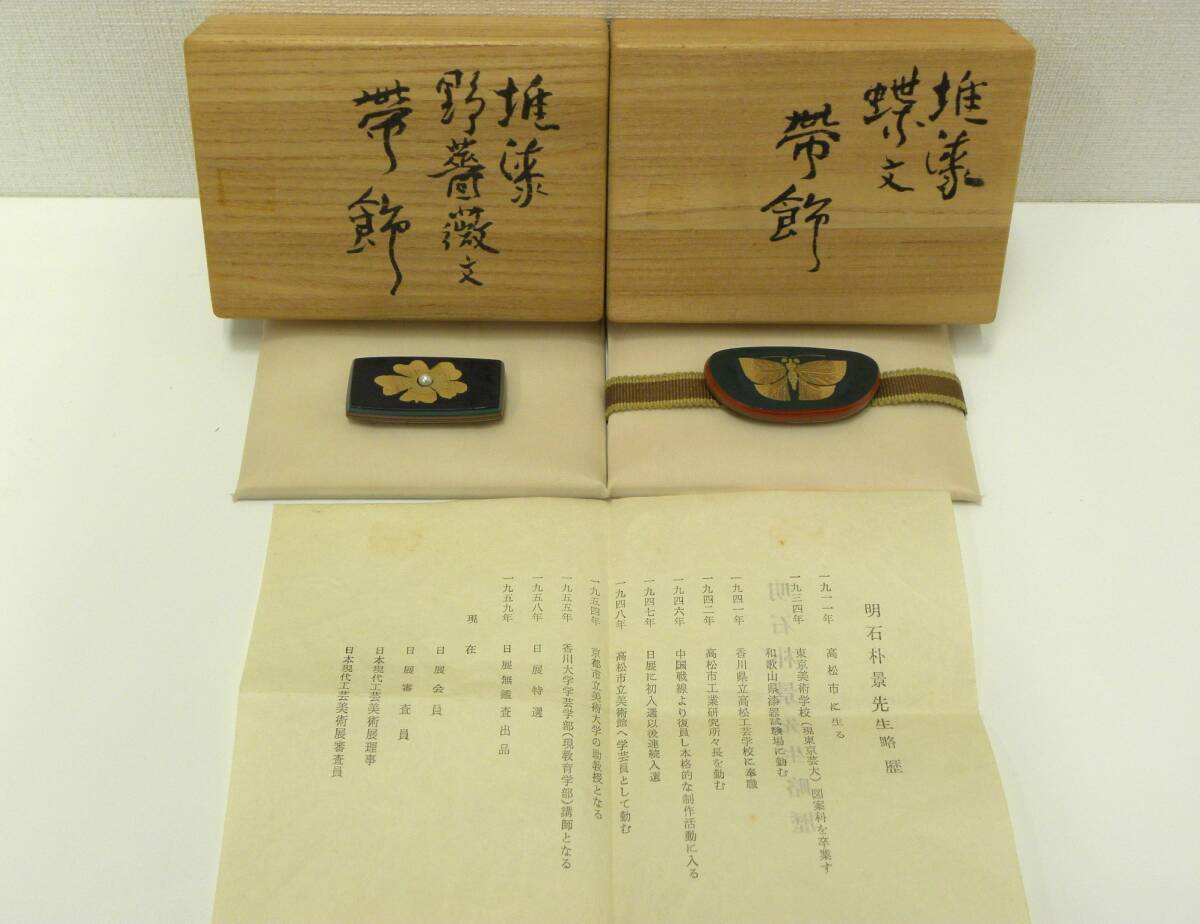 堆漆
野薔薇文
帯飾
堆漆
蝶文
帯飾
明石朴景先生略歴
一九一一年 高松市に生る
一九三四年 東京美術学校(現東京芸大)図案科を卒業す
和歌山県漆器試験場に勤む
一九四一年 香川県立高松工芸学校に奉職
一九四二年 高松市工業研究所々長を勤む
一九四六年 中国戦線より復員し本格的な制作活動に入る
一九四七年 日展に初入選以後連続入選
一九四八年 高松市立美術館へ学芸員として勤む
一九五四年 京都市立美術大学の助教授となる
一九五五年 香川大学学芸学部(現教育学部)講師となる
一九五八年 日展特選
一九五九年 日展無鑑査出品
現在
日展会員
日展審査員
日本現代工芸美術展理事
日本現代工芸美術展審査員